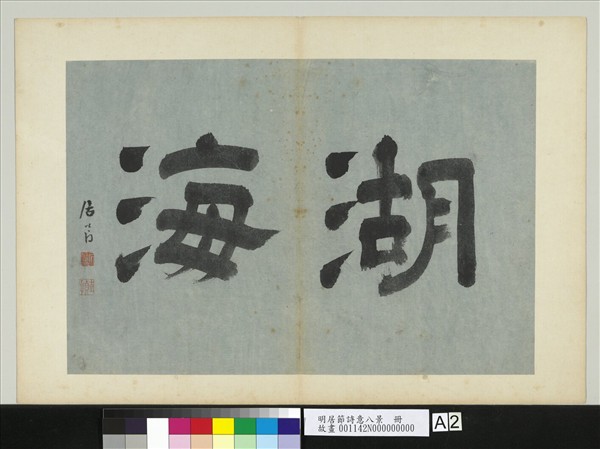 湖海
居節
明居節詩意八景 冊
故畫001142N000000000
A2